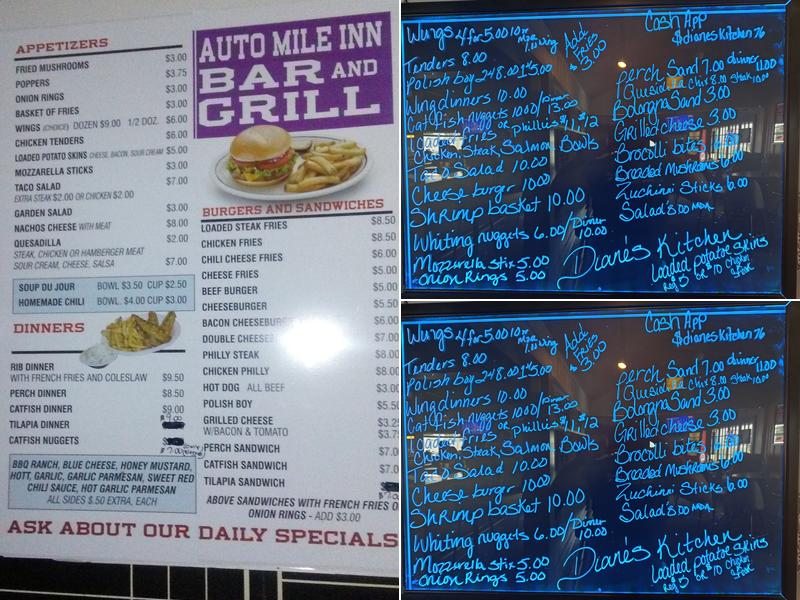 AUTO MILE INN
BAR AND
GRILL
APPETIZERS
FRIED MUSHROOMS $3.00
POPPERS $3.75
ONION RINGS $3.00
BASKET OF FRIES $3.00
WINGS (CHOICE) DOZEN $9.00 1/2 DOZ. $6.00
CHICKEN TENDERS $6.00
LOADED POTATO SKINS CHEESE, BACON, SOUR CREAM $5.00
MOZZARELLA STICKS $3.00
TACO SALAD $7.00
EXTRA STEAK $2.00 OR CHICKEN $2.00
GARDEN SALAD $3.00
NACHOS CHEESE WITH MEAT $8.00
QUESADILLA $2.00
STEAK, CHICKEN OR HAMBERGER MEAT
SOUR CREAM, CHEESE, SALSA $7.00
SOUP DU JOUR BOWL $3.50 CUP $2.50
HOMEMADE CHILI BOWL. $4.00 CUP $3.00
DINNERS
RIB DINNER
WITH FRENCH FRIES AND COLESLAW $9.50
PERCH DINNER $8.50
CATFISH DINNER $9.00
TILAPIA DINNER $9.00
CATFISH NUGGETS
$7.00
BBQ RANCH, BLUE CHEESE, HONEY MUSTARD,
HOTT, GARLIC, GARLIC PARMESAN, SWEET RED
CHILI SAUCE, HOT GARLIC PARMESAN
ALL SIDES $.50 EXTRA, EACH
BURGERS AND SANDWICHES
LOADED STEAK FRIES $8.50
CHICKEN FRIES $8.50
CHILI CHEESE FRIES $6.00
CHEESE FRIES $5.00
BEEF BURGER $5.00
CHEESEBURGER $5.50
BACON CHEESEBURG $6.00
DOUBLE CHEESE $7.00
PHILLY STEAK $8.00
CHICKEN PHILLY $8.00
HOT DOG ALL BEEF $3.00
POLISH BOY $5.50
GRILLED CHEESE $3.25
W/BACON & TOMATO $3.7
PERCH SANDWICH $7.0
CATFISH SANDWICH $7.
TILAPIA SANDWICH
ABOVE SANDWICHES WITH FRENCH FRIES O
ONION RINGS - ADD $3.00
ASK ABOUT OUR DAILY SPECIALS
Wings 4 for 5.00
Add
Fries
3.00
Tenders 8.00
Polish boy
Wing dinners 10.00
Catfish nuggets 10.00/Dinner 13.00
Loaded Fries or phillis $11, $12
Chicken, Steak, Salmon Bowls
Taco Salad 10.00
Cheese burgr 10.00
Shrimp basket 10.00
Whiting nuggets 6.00/Dinner 10.00
Mozzurella Stix 5.00
Onion Rings 5.00
Cash App
$dianes Kitchen 76
Perch Sand 7.00 dinner 11.00
Bolongna Sand 3.00
Grilled cheese 3.00
Brocolli bites
Breaded Mushrooms 6.00
Zuchinni Sticks 6.00
Salad's
Diane's Kitchen
Loaded potatoe Skins
Wings 4 for 5.00
Add
Fries
3.00
Tenders 8.00
Polish boy
Wing dinners 10.00
Catfish nuggets 10.00/Dinner 13.00
Loaded Fries or phillis $11, $12
Chicken, Steak, Salmon Bowls
Taco Salad 10.00
Cheese burgr 10.00
Shrimp basket 10.00
Whiting nuggets 6.00/Dinner 10.00
Mozzurella Stix 5.00
Onion Rings 5.00
Cash App
$dianes Kitchen 76
Perch Sand 7.00 dinner 11.00
Bolongna Sand 3.00
Grilled cheese 3.00
Brocolli bites
Breaded Mushrooms 6.00
Zuchinni Sticks 6.00
Salad's
Diane's Kitchen
Loaded potatoe Skins